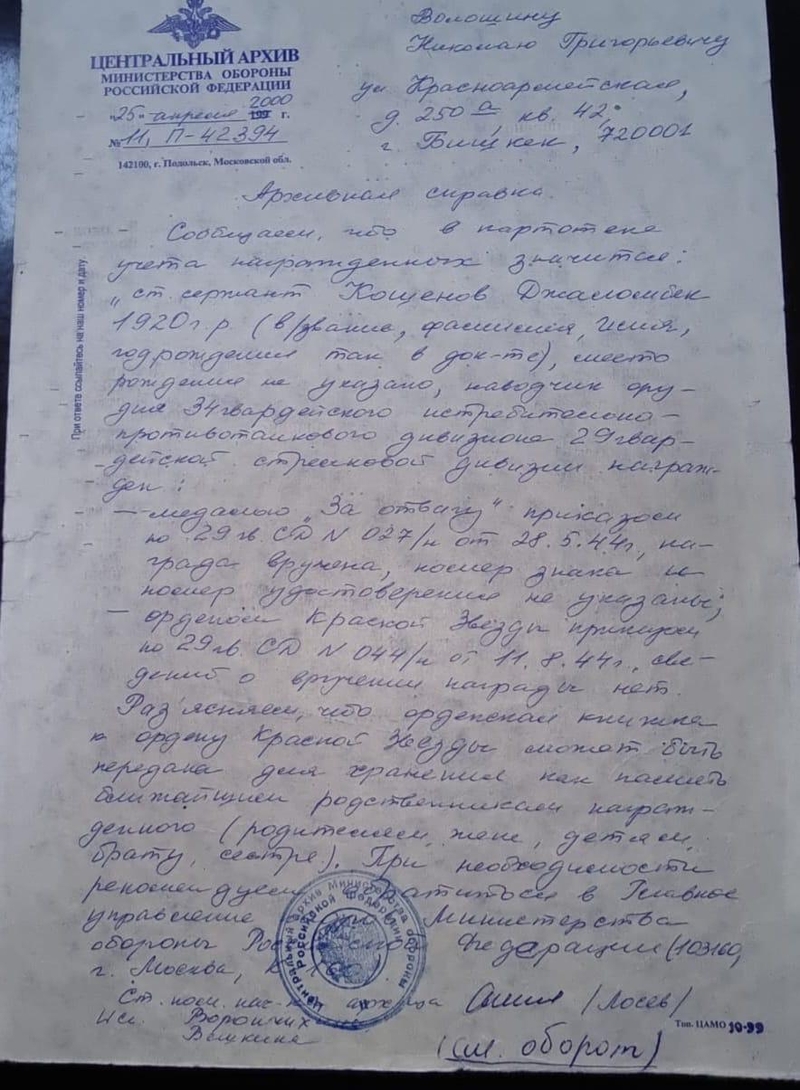 ЦЕНТРАЛЬНЫЙ АРХИВ
МИНИСТЕРСТВА ОБОРОНЫ
РОССИЙСКОЙ ФЕДЕРАЦИИ
"25" апреля 2000 199 г.
№ 11, П-42394
142100, г. Подольск, Московской обл.
Волошину
Николаю Григорьевичу
ул Красноармейская,
д. 250 а, кв. 42
г. Бишкек, 720001
Архивная справка
При ответе ссылайтесь на наш номер и дату
Сообщаем, что в картотеке
учета награжденных значится:
"ст. сержант Кощенов Джасломбек
1920 г. р. (в/звание, фамилия, имя,
год рождения так в док-те), место
рождения не указано, наводчик ору-
дия 34 гвардейского истребительно-
противотанкового дивизиона 29 гвар-
дейской стрелковой дивизии награж-
ден:
— медалью "За отвагу" приказом
по 29 гв. СД N 027/н от 28.5.44г., на-
града вручена, номер знака и
номер удостоверения не указаны;
— орденом Красной Звезды приказом
по 29 гв. СД N 044/н от 11.8.44г., све-
дений о вручении награды нет.
Раз'ясняем, что орденская книжка
к ордену Красной Звезды может быть
передана для хранения как память
ближайшим родственникам награж-
денного (родителям, жене, детям,
брату, сестре). При необходимости
рекомендуем обратиться в Главное
управление Министерства
обороны Российской Федерации (103160,
г. Москва, К-160
Ст. пом. нач-ка архива /Лосев/
Исп.
Центральный архив Министерства обороны
Российской Федерации
Тип. ЦАМО 10-99
(см. оборот)